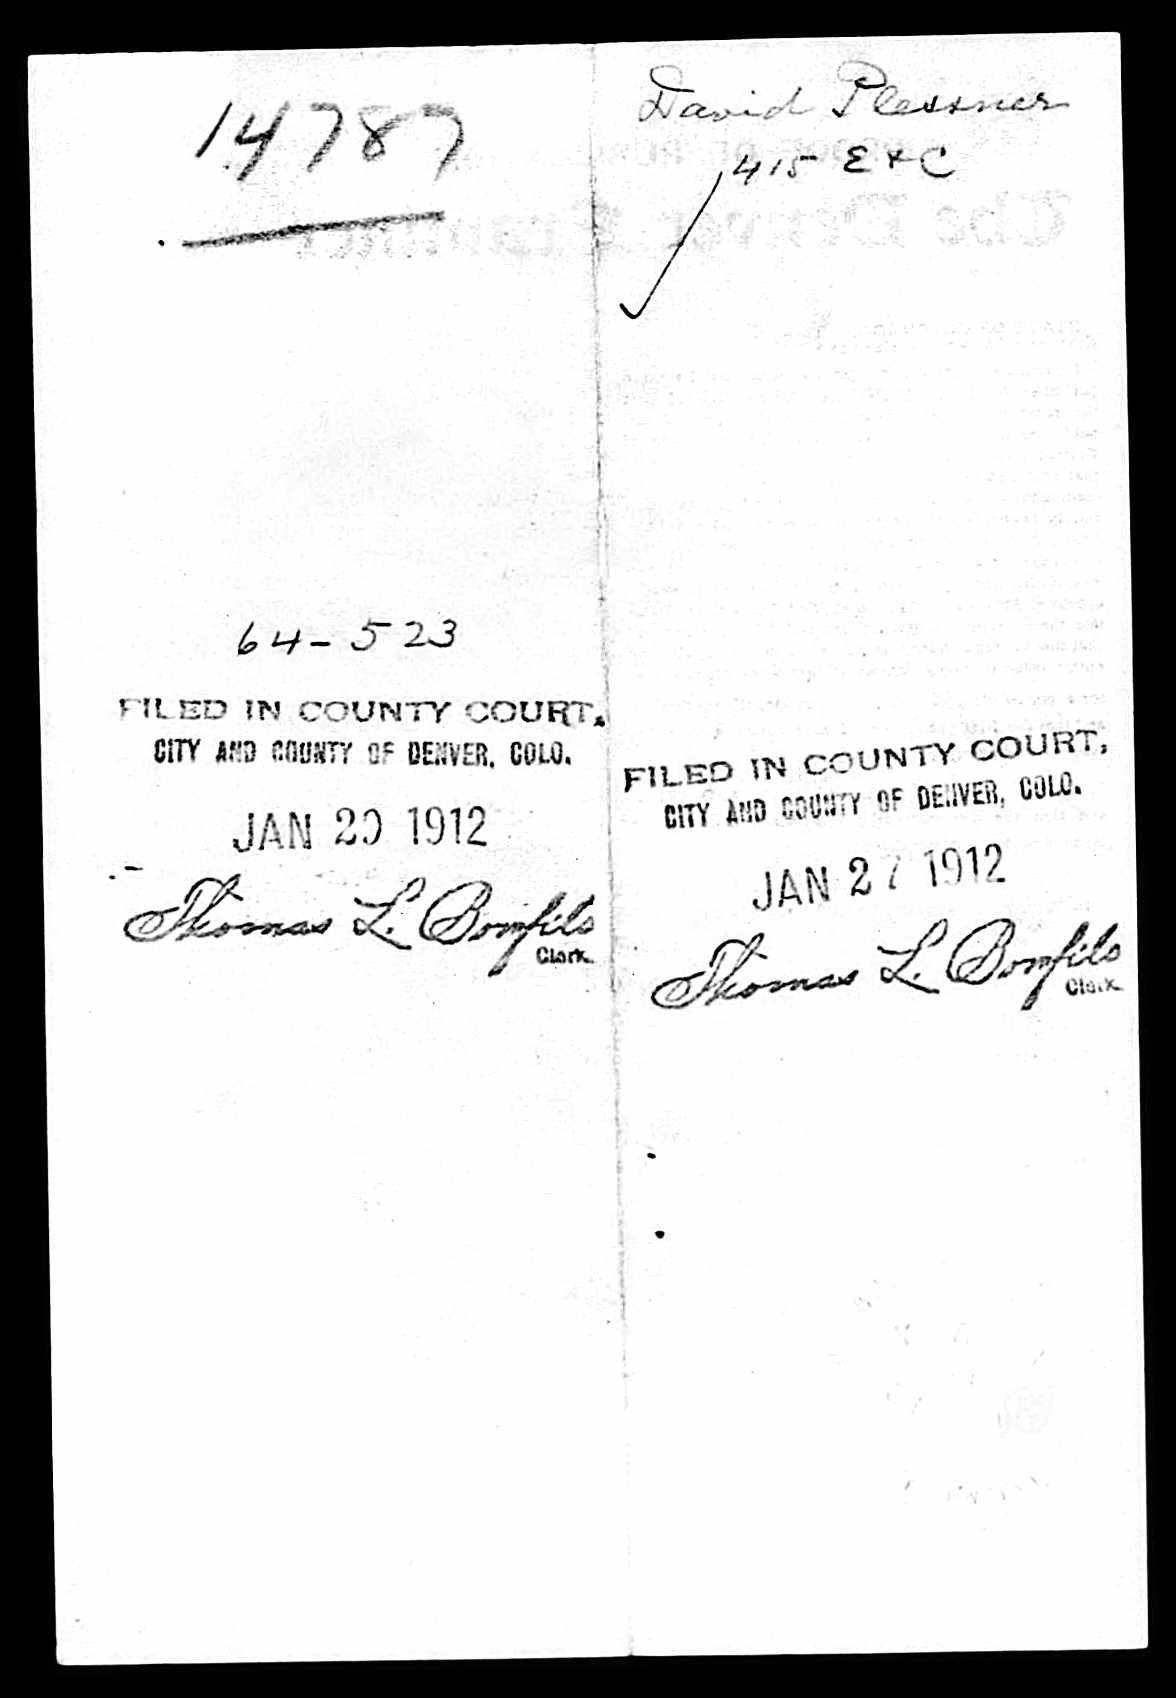 14787
64-523
FILED IN COUNTY COURT,
CITY AND COUNTY OF DENVER, COLO.
JAN 20 1912
Thomas L. Bonfils
Clerk.
David Plessner
415 E & C
The Denver
FILED IN COUNTY COURT,
CITY AND COUNTY OF DENVER, COLO.
JAN 27 1912
Thomas L. Bonfils
Clerk.